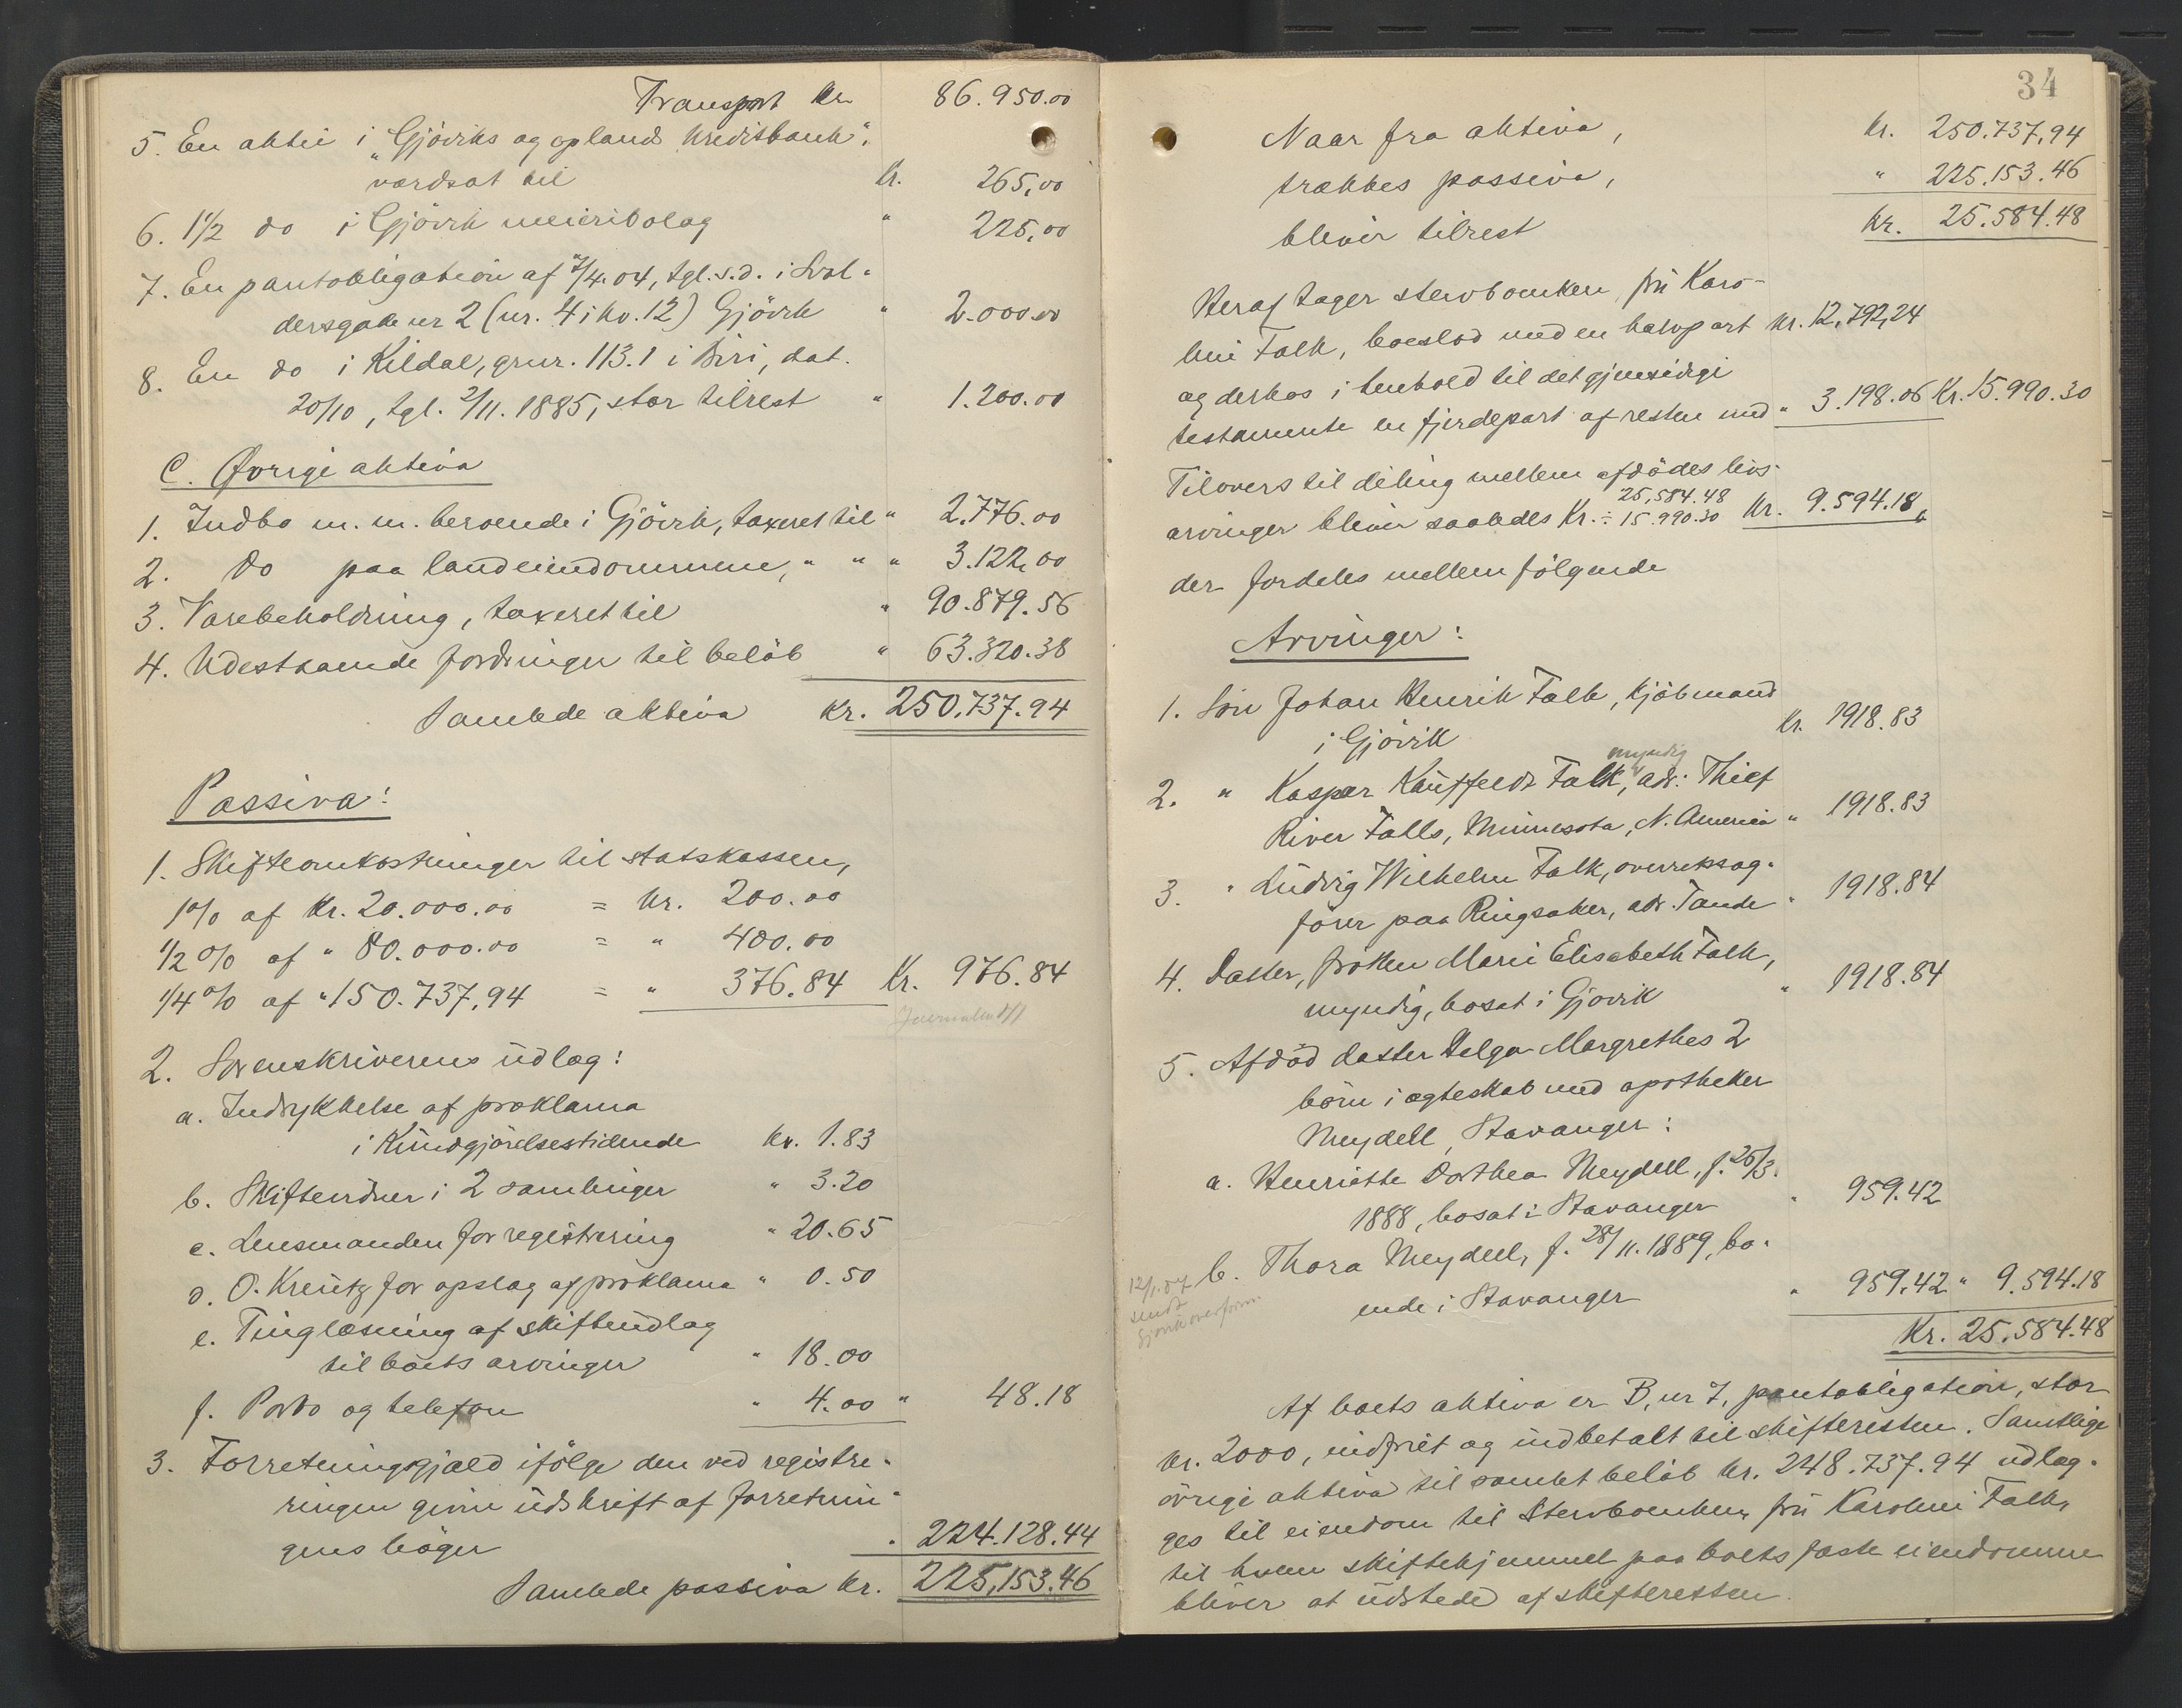 Transport kr. 86.950.00
5. En aktie i „Gjöviks og oplands kreditbank“,
værdsat til kr. 265,00
6. 1 1/2 do i Gjövik meieribolag " 225,00
7. En pantobligation af 7/4.04, tgl. s.d. i Hol-
dersgade nr 2 (nr. 4 i kv. 12) Gjövik " 2.000.00
8. En do i Kildal, gnr. 113.1 i Biri, dat.
20/10, tgl. 2/11. 1885, stor tilrest " 1.200.00
C. Øvrige aktiva
1. Indbo m. m. beroende i Gjövik, taxeret til " 2.776.00
2. Do paa landeiendommene, " " " 3.122,00
3. Varebeholdning, taxeret til " 90.879.56
4. Udestaaende fordringer til beløb " 63.320.38
Samlede aktiva kr. 250.737.94
Passiva:
1. Skifteomkostninger til statskassen,
1% af kr. 20.000.00 = kr. 200.00
1/2% af " 80.000.00 = " 400.00
1/4% af " 150.737,94 = " 376.84 Kr. 976.84
2. Sorenskriverens udlæg:
a. Indrykkelse af proklama
i Kundgjörelsestidende kr. 1.83
b. Skiftevidner i 2 samlinger " 3.20
c. Lensmanden for registrering " 20.65
d. O. Kreutz for opslag af proklama " 0.50
e. Tinglæsning af skifteudlæg
til boets arvinger " 18.00
f. Porto og telefon " 4.00 " 48.18
3. Forretningsgjæld ifölge den ved registre-
ringen givne udskrift af forretnin-
gens böger " 224.128.44
Samlede passiva kr. 225,153.46
34
Naar fra aktiva, kr. 250.737,94
trækkes passiva, " 225.153.46
bliver tilrest kr. 25.584.48
Heraf tager stervboenken, fru Karo-
line Falk, boeslod med en halvpart kr. 12,792,24
og derhos i henhold til det gjensidige
testamente en fjerdepart af resten med " 3.198.06 Kr. 15.990.30
Tilovers til deling mellem afdödes livs-
arvinger bliver saaledes Kr. 25,584.48 ÷ 15.990.30 Kr. 9.594.18,
der fordeles mellem fölgende
Arvinger:
1. Sön Johan Henrik Falk, kjöbmand
i Gjövik Kr. 1918.83
2. " Kaspar Kauffeldt Falk, myndig, adr: Thief
River Falls, Minnesota, N. America " 1918.83
3. " Ludvig Wilhelm Falk, overretssag-
förer paa Ringsaker, adr. Tande " 1918.84
4. Datter, fröken Marie Elisabeth Falk,
myndig, bosat i Gjövik " 1918.84
5. Afdöd datter Helga Margrethes 2
börn i ægteskab med apotheker
Meydell, Stavanger:
a. Henriette Dorthea Meydell, f. 26/3.
1888, bosat i Stavanger " 959.42
b. Thora Meydell, f. 28/11. 1889, bo-
ende i Stavanger " 959.42 " 9.594.18
12/1.07
sendt
Gjövik overform.
Kr. 25.584.48
Af boets aktiva er B, nr 7, pantobligation, stor
kr. 2000, indfriet og indbetalt til skifteretten. Samtlige
övrige aktiva til samlet beløb kr. 248.737.94 udlæg-
ges til eiendom til stervboenken, fru Karoline Falk,
til hvem skiftehjemmel paa boets faste eiendomme
bliver at udstede af skifteretten.